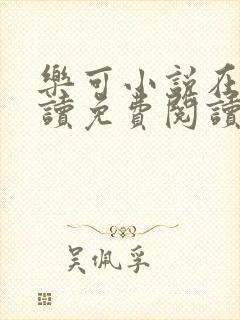 樂可小說在
讀免費閱讀
吴佩孚